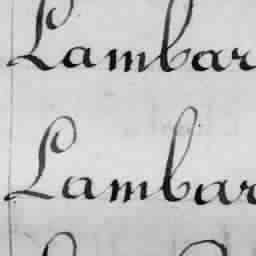 Lambar
Lambar